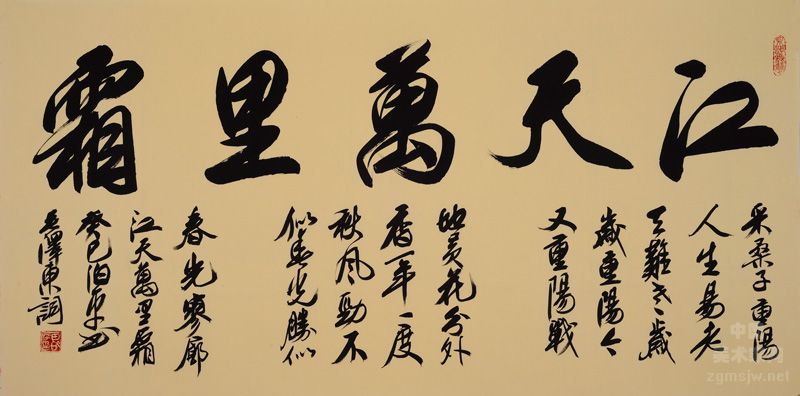 江天萬里霜
采桑子重陽
人生易老
天難老歲
歲重陽今
又重陽戰
地黄花分外
香一年一度
秋風勁不
似春光勝似
春光寥廓
江天萬里霜
癸巳泊書
毛澤東詞
zgmsjw.net